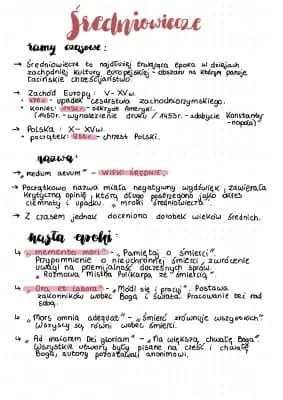 Średniowiecze
ramy czasowe:
→ Średniowiecze to najdłużej trwająca epoka w dziejach
zachodniej kultury europejskiej - obszaru na którym panuje
łacińskie chrześcijaństwo.
→ Zachód Europy: V- XVw.
• 476r - upadek cesarstwa zachodniorzymskiego.
• koniec: 1492r. - odkrycie Ameryki.
(1450r. - wynalezienie druku / 1453r. - zdobycie Konstanty-
-nopola)
→ Polska: X- XVw.
• początek: 966r. - chrzest Polski.
nazwa:
→ „medium aevum" - WIEKI ŚREDNIE.
→ Początkowo nazwa miała negatywny wydźwięk, zawierała
krytyczną opinię, którą długo postrzegano jako okres
ciemnoty i upadku. „mroki średniowiecza".
→ Z czasem jednak doceniono dorobek wieków średnich.
hasła epoki:
↳ „memento mori" - „Pamiętaj o śmierci".
Przypomnienie o nieuchronnej śmierci, zwrócenie
uwagi na przemijalność doczesnych spraw.
„Rozmowa Mistrza Polikarpa ze śmiercią".
↳ „Ora et labora" - „Módl się i pracuj". Postawa
zakonników wobec Boga i świata. Pracowanie też nad
sobą.
↳ „Mors omnia adequat" - „Śmierć zrównuje wszystkich".
Wszyscy są równi wobec śmierci.
↳ „Ad maiorem Dei gloriam" - „Na większą chwałę Boga".
Wszystkie utwory były pisane na cześć i chwałę
Boga, autorzy pozostawali anonimowi.